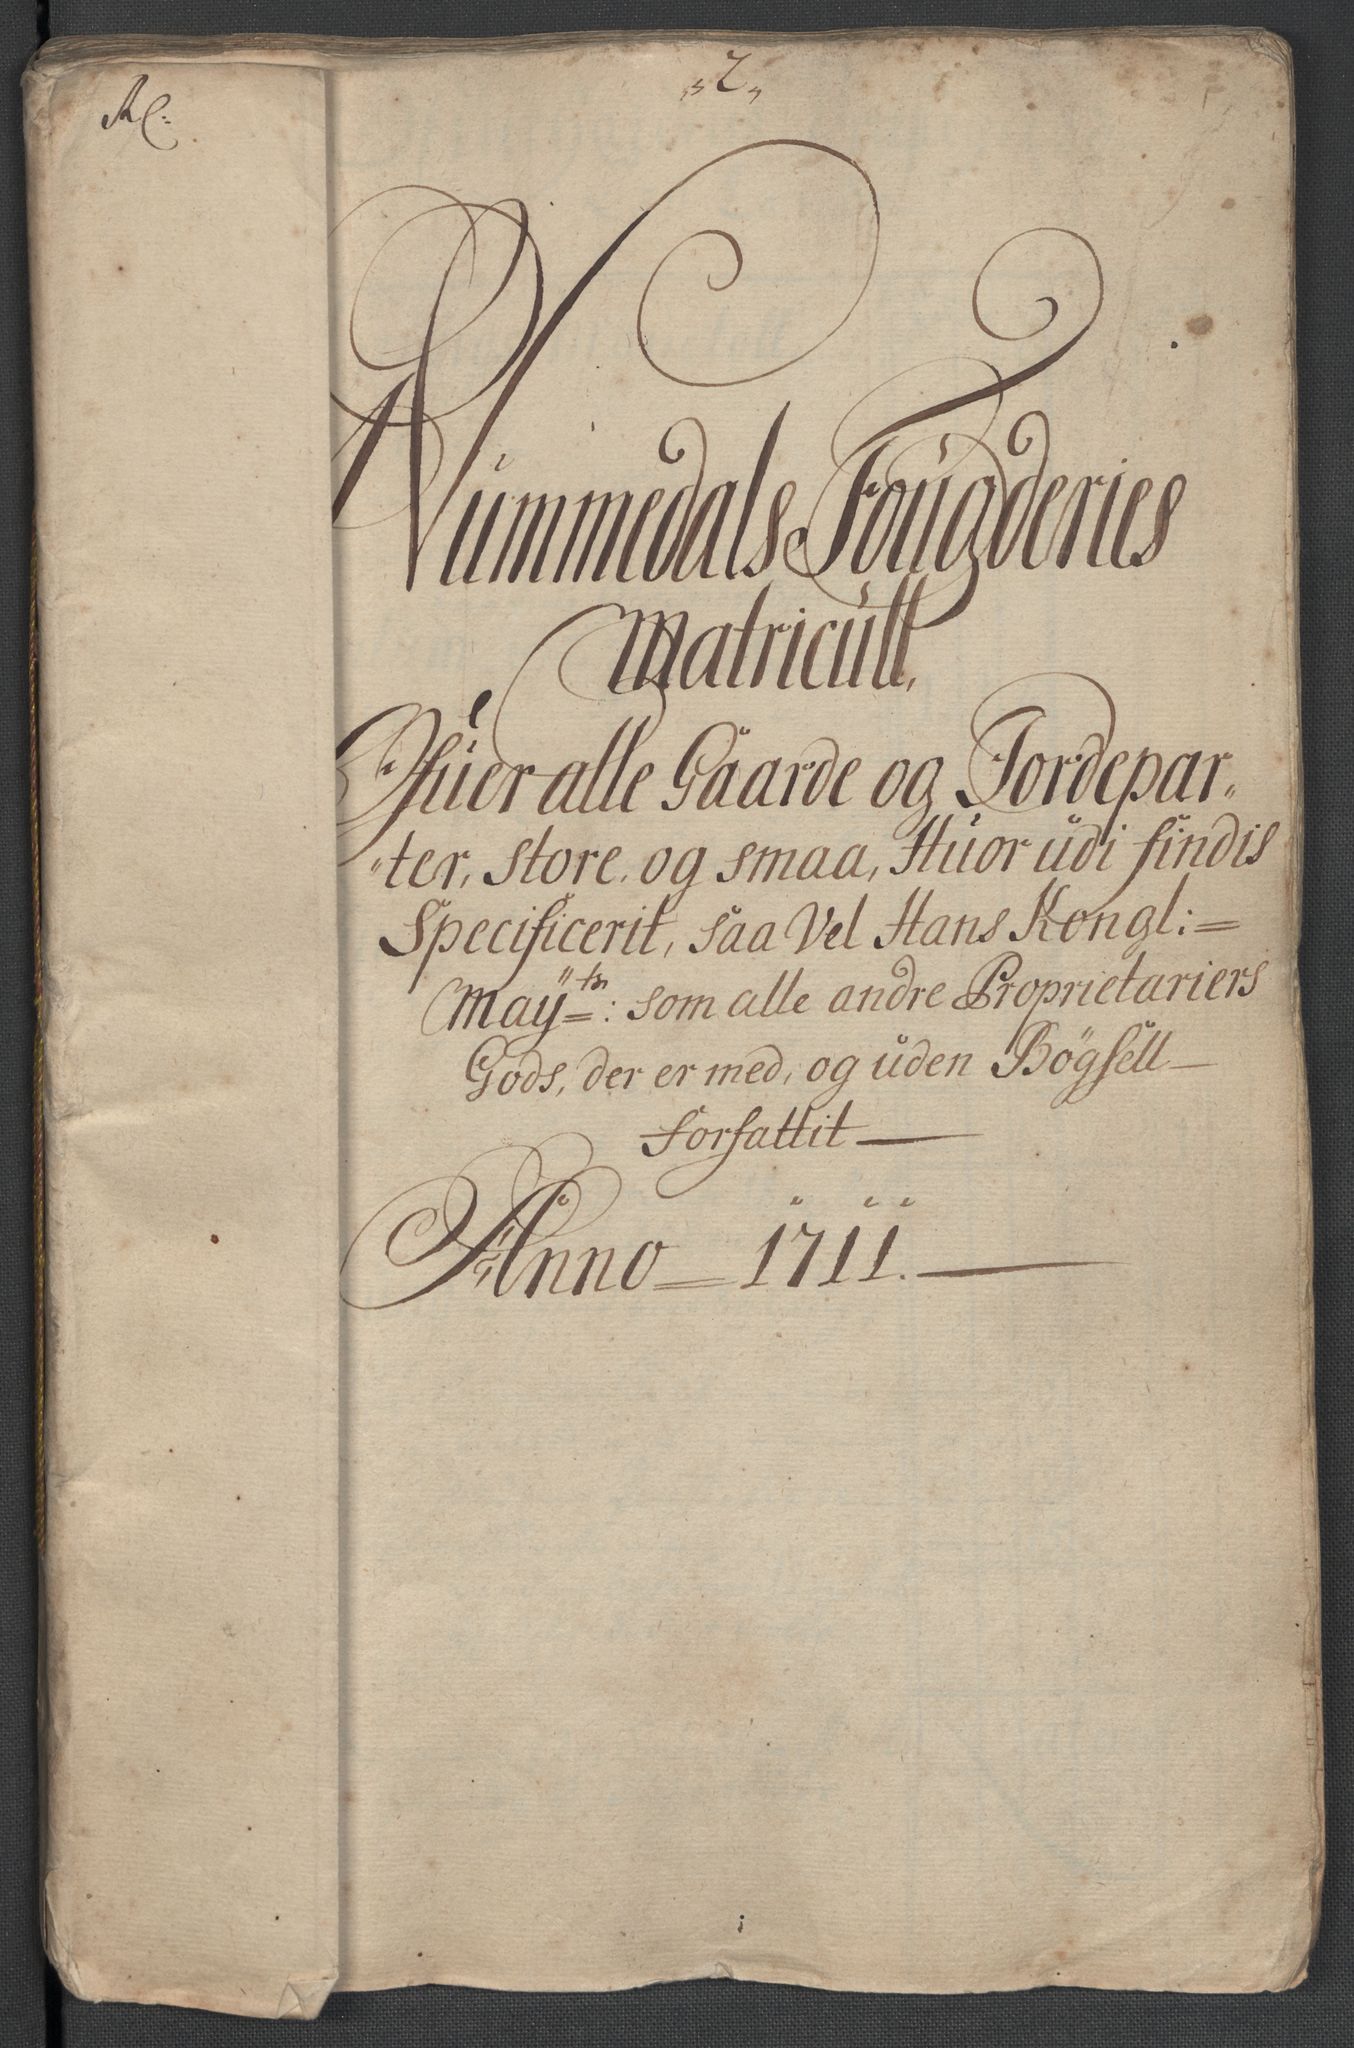 „2„
Nummedals Fougderies
Matricull,
Ofuer alle Gaarde og Jordepar„
„ter, store, og smaa, Huor udi findis
Specificerit, saa Vel Hans Kongl:=
Mayᵗˢ: som alle andre Proprietariers
Gods, der er med, og uden Bögsell—
forfattit—
Anno = 1711.—